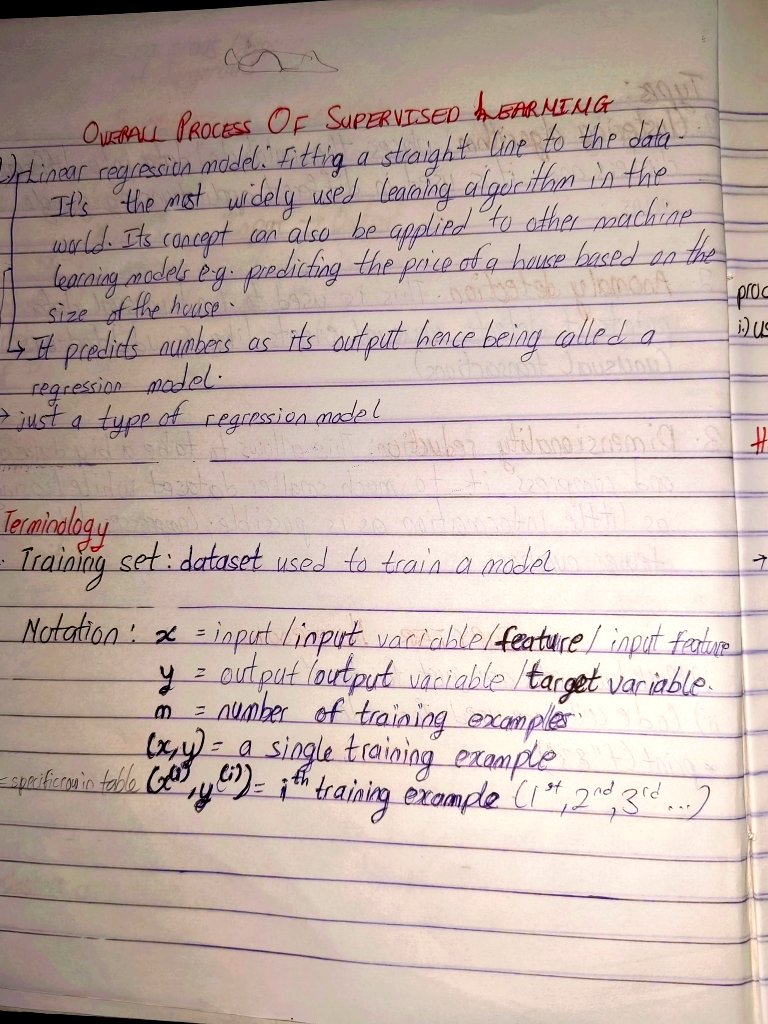 OVERALL PROCESS OF SUPERVISED LEARNING
1.) Linear regression model: Fittig a straight line to the data.
It's the most widely used learning algorithm in the
world. Its concept can also be applied to other machine
learning models e.g. predicting the price of a house based on the
size of the house.
↳ It predicts numbers as its output hence being called a
regression model.
→ just a type of regression model
Terminology
Training set: dataset used to train a model
Notation: x = input/input variable/feature/input feature
y = output/output variable/target variable.
m = number of training examples
(x,y) = a single training example
= specific row in table (x⁽ⁱ⁾, y⁽ⁱ⁾) = iᵗʰ training example (1ˢᵗ, 2ⁿᵈ, 3ʳᵈ ...)
proc
i.) us
H
→